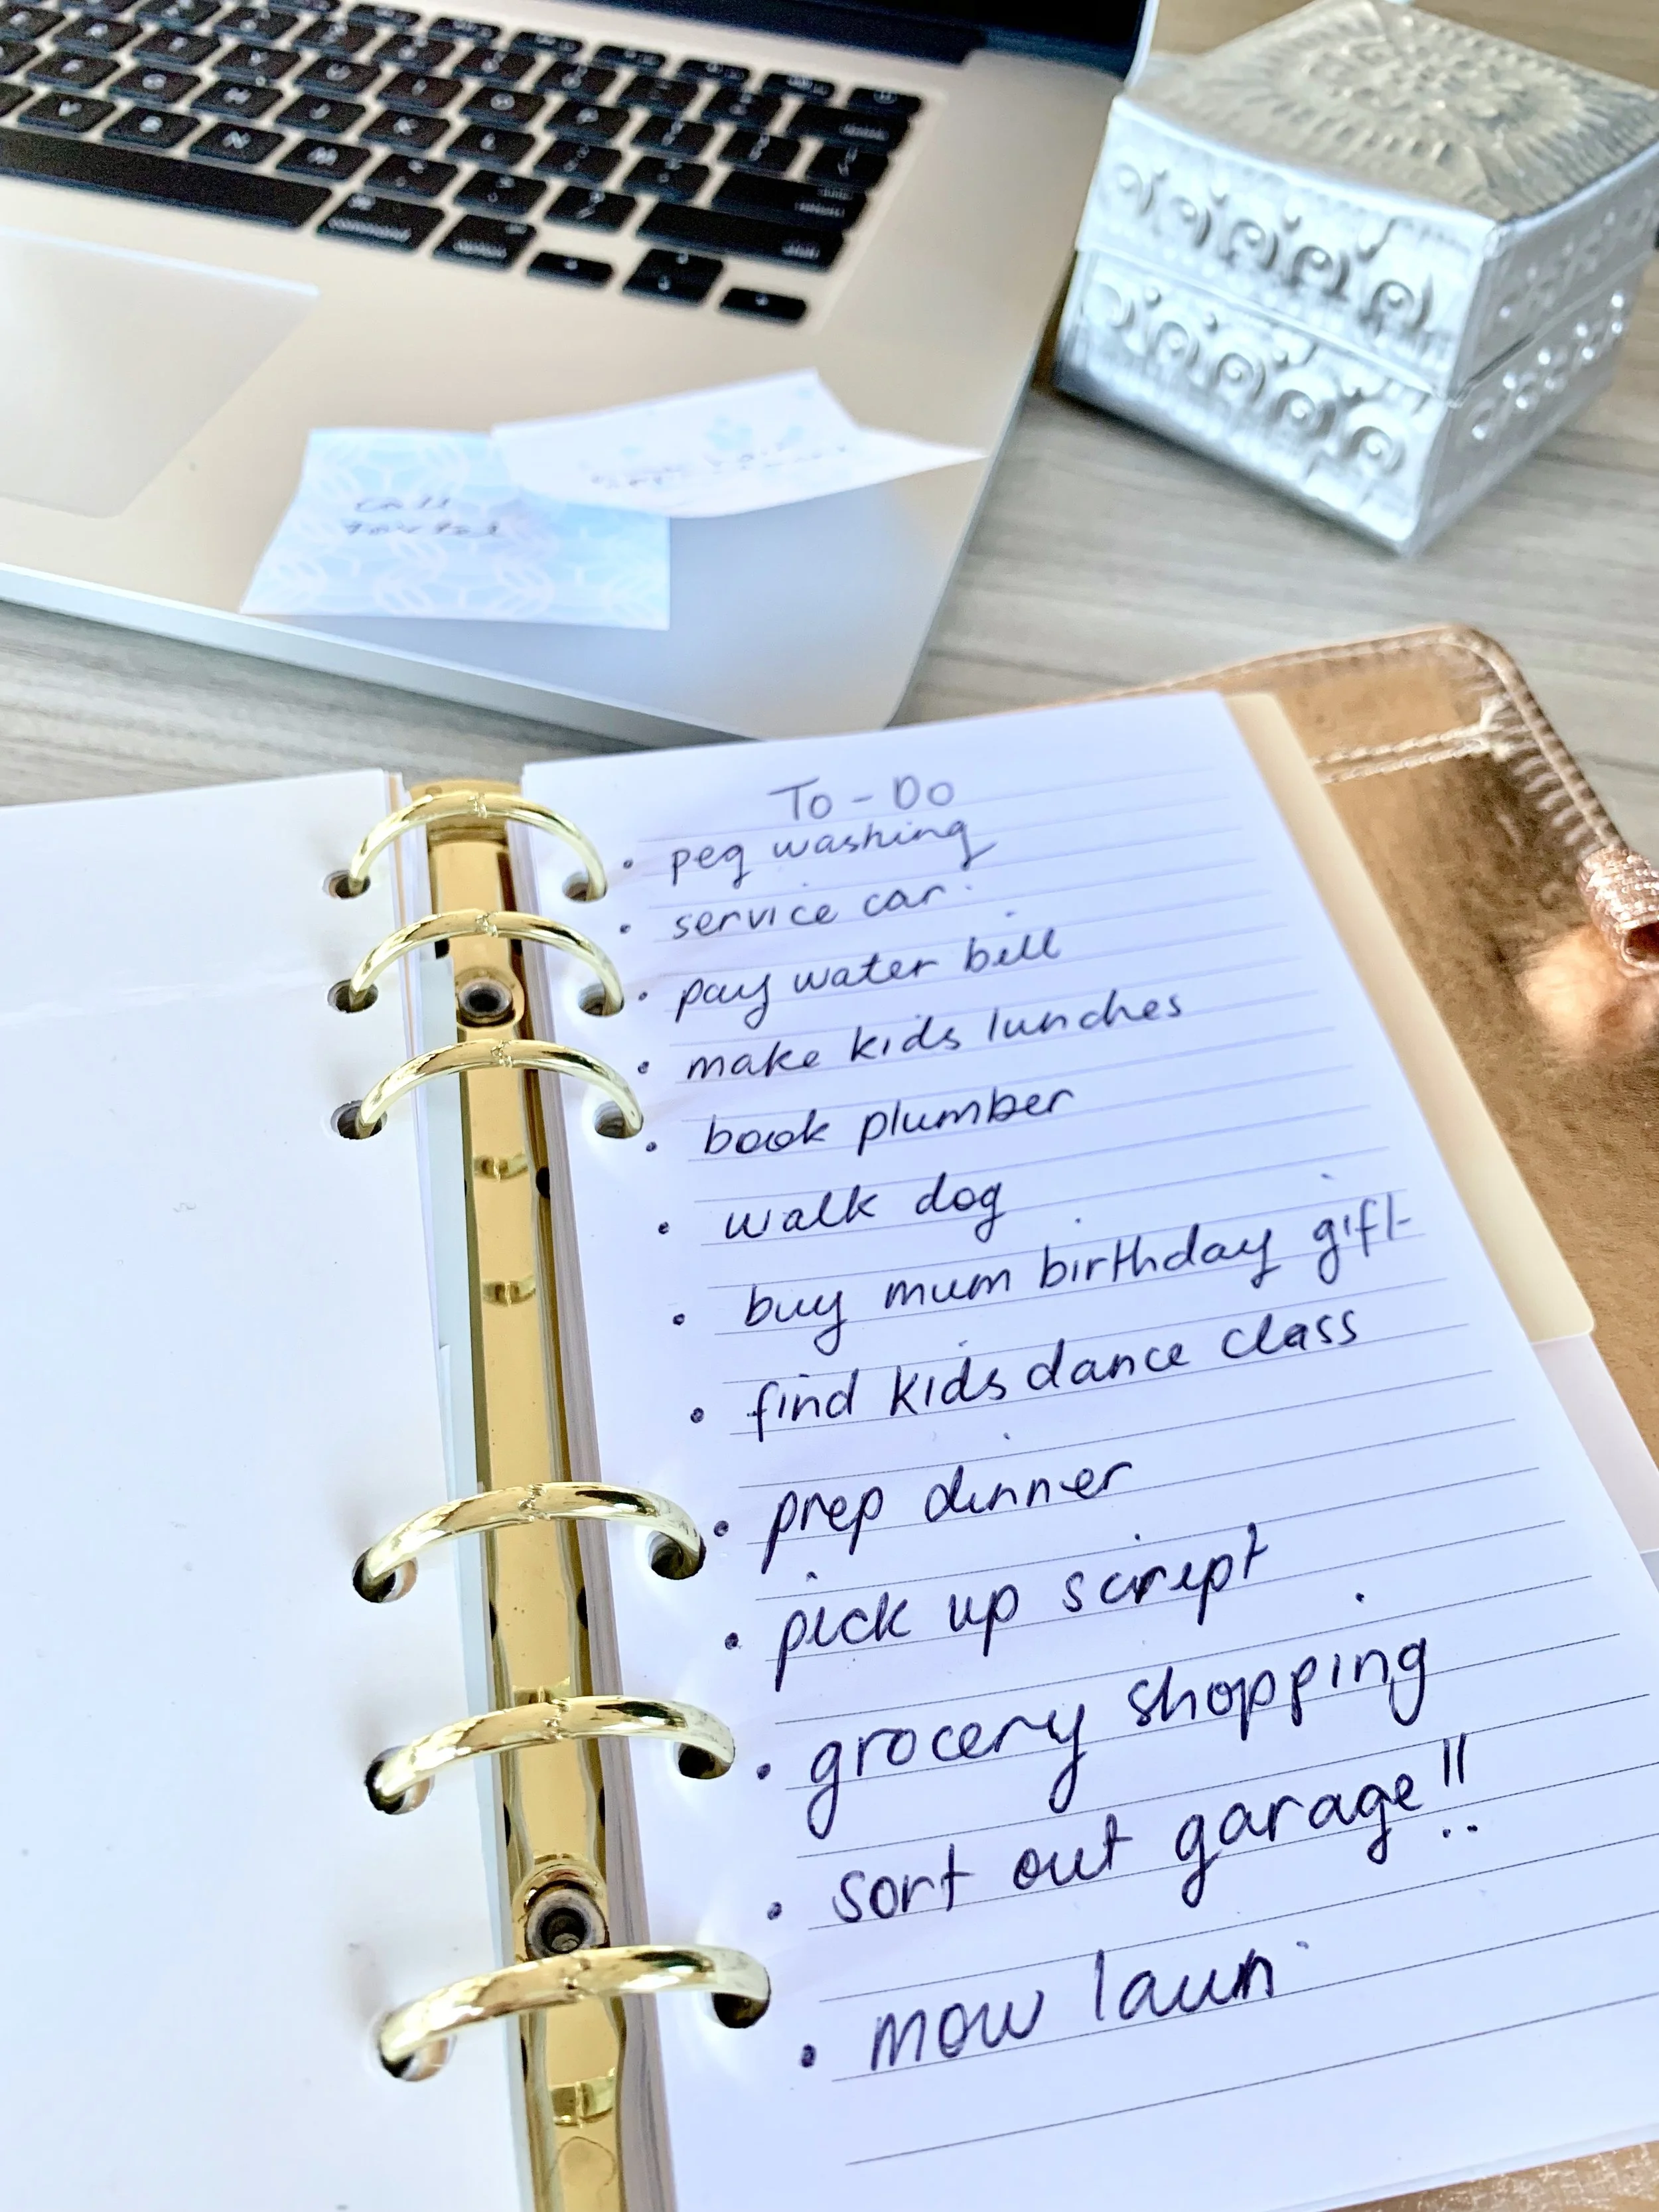 call
To-Do
• peg washing
• service car
• pay water bill
• make kids lunches
• book plumber
• walk dog
• buy mum birthday gift
• find kids dance class
• prep dinner
• pick up script
• grocery shopping
• sort out garage!!
• mow lawn
command
option